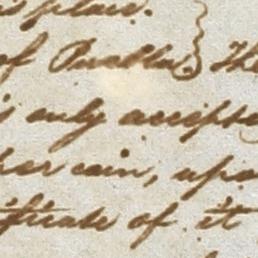 place.
of Puebla. } The
is only accepte
her coin, upo
ificate of it